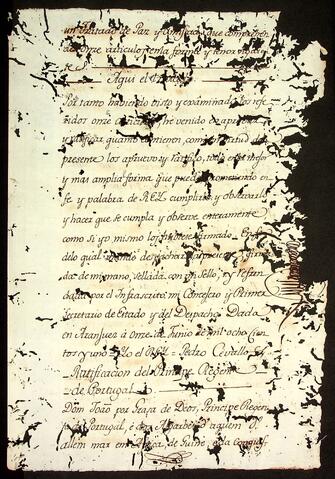 un Tratado de Paz y que
de onze articulos forma y tenor
Aqui el
Por tanto habiendo visto y examinado los refe-
ridos onze he venido en
y ratificar quanto contienen, como en virtud de la
presente los apruevo y ratifico, todo en la mejor
y mas amplia forma que puedo, prometiendo en
fe y palabra de REY cumplirlo y observarlo
y hacer que se cumpla y observe enteramente
como si yo mismo los huviese firmado. En fe
de lo qual firma-
da de mi mano, sellada con mi sello, y refren-
dada por el Infrascrito mi Consejero y Primer
Secretario de Estado y del Despacho. Dada
en Aranjuez á onze de Junio de mil ochocien-
tos y uno = YO el REY = Pedro Cevallos
Ratificacion del Principe Regente
de Portugal
Dom João por Graça de Deos, Principe Regen-
te de Portugal, e dos Algarbes, d'aquem
allem mar em Africa, de Guine, e da Conquis-